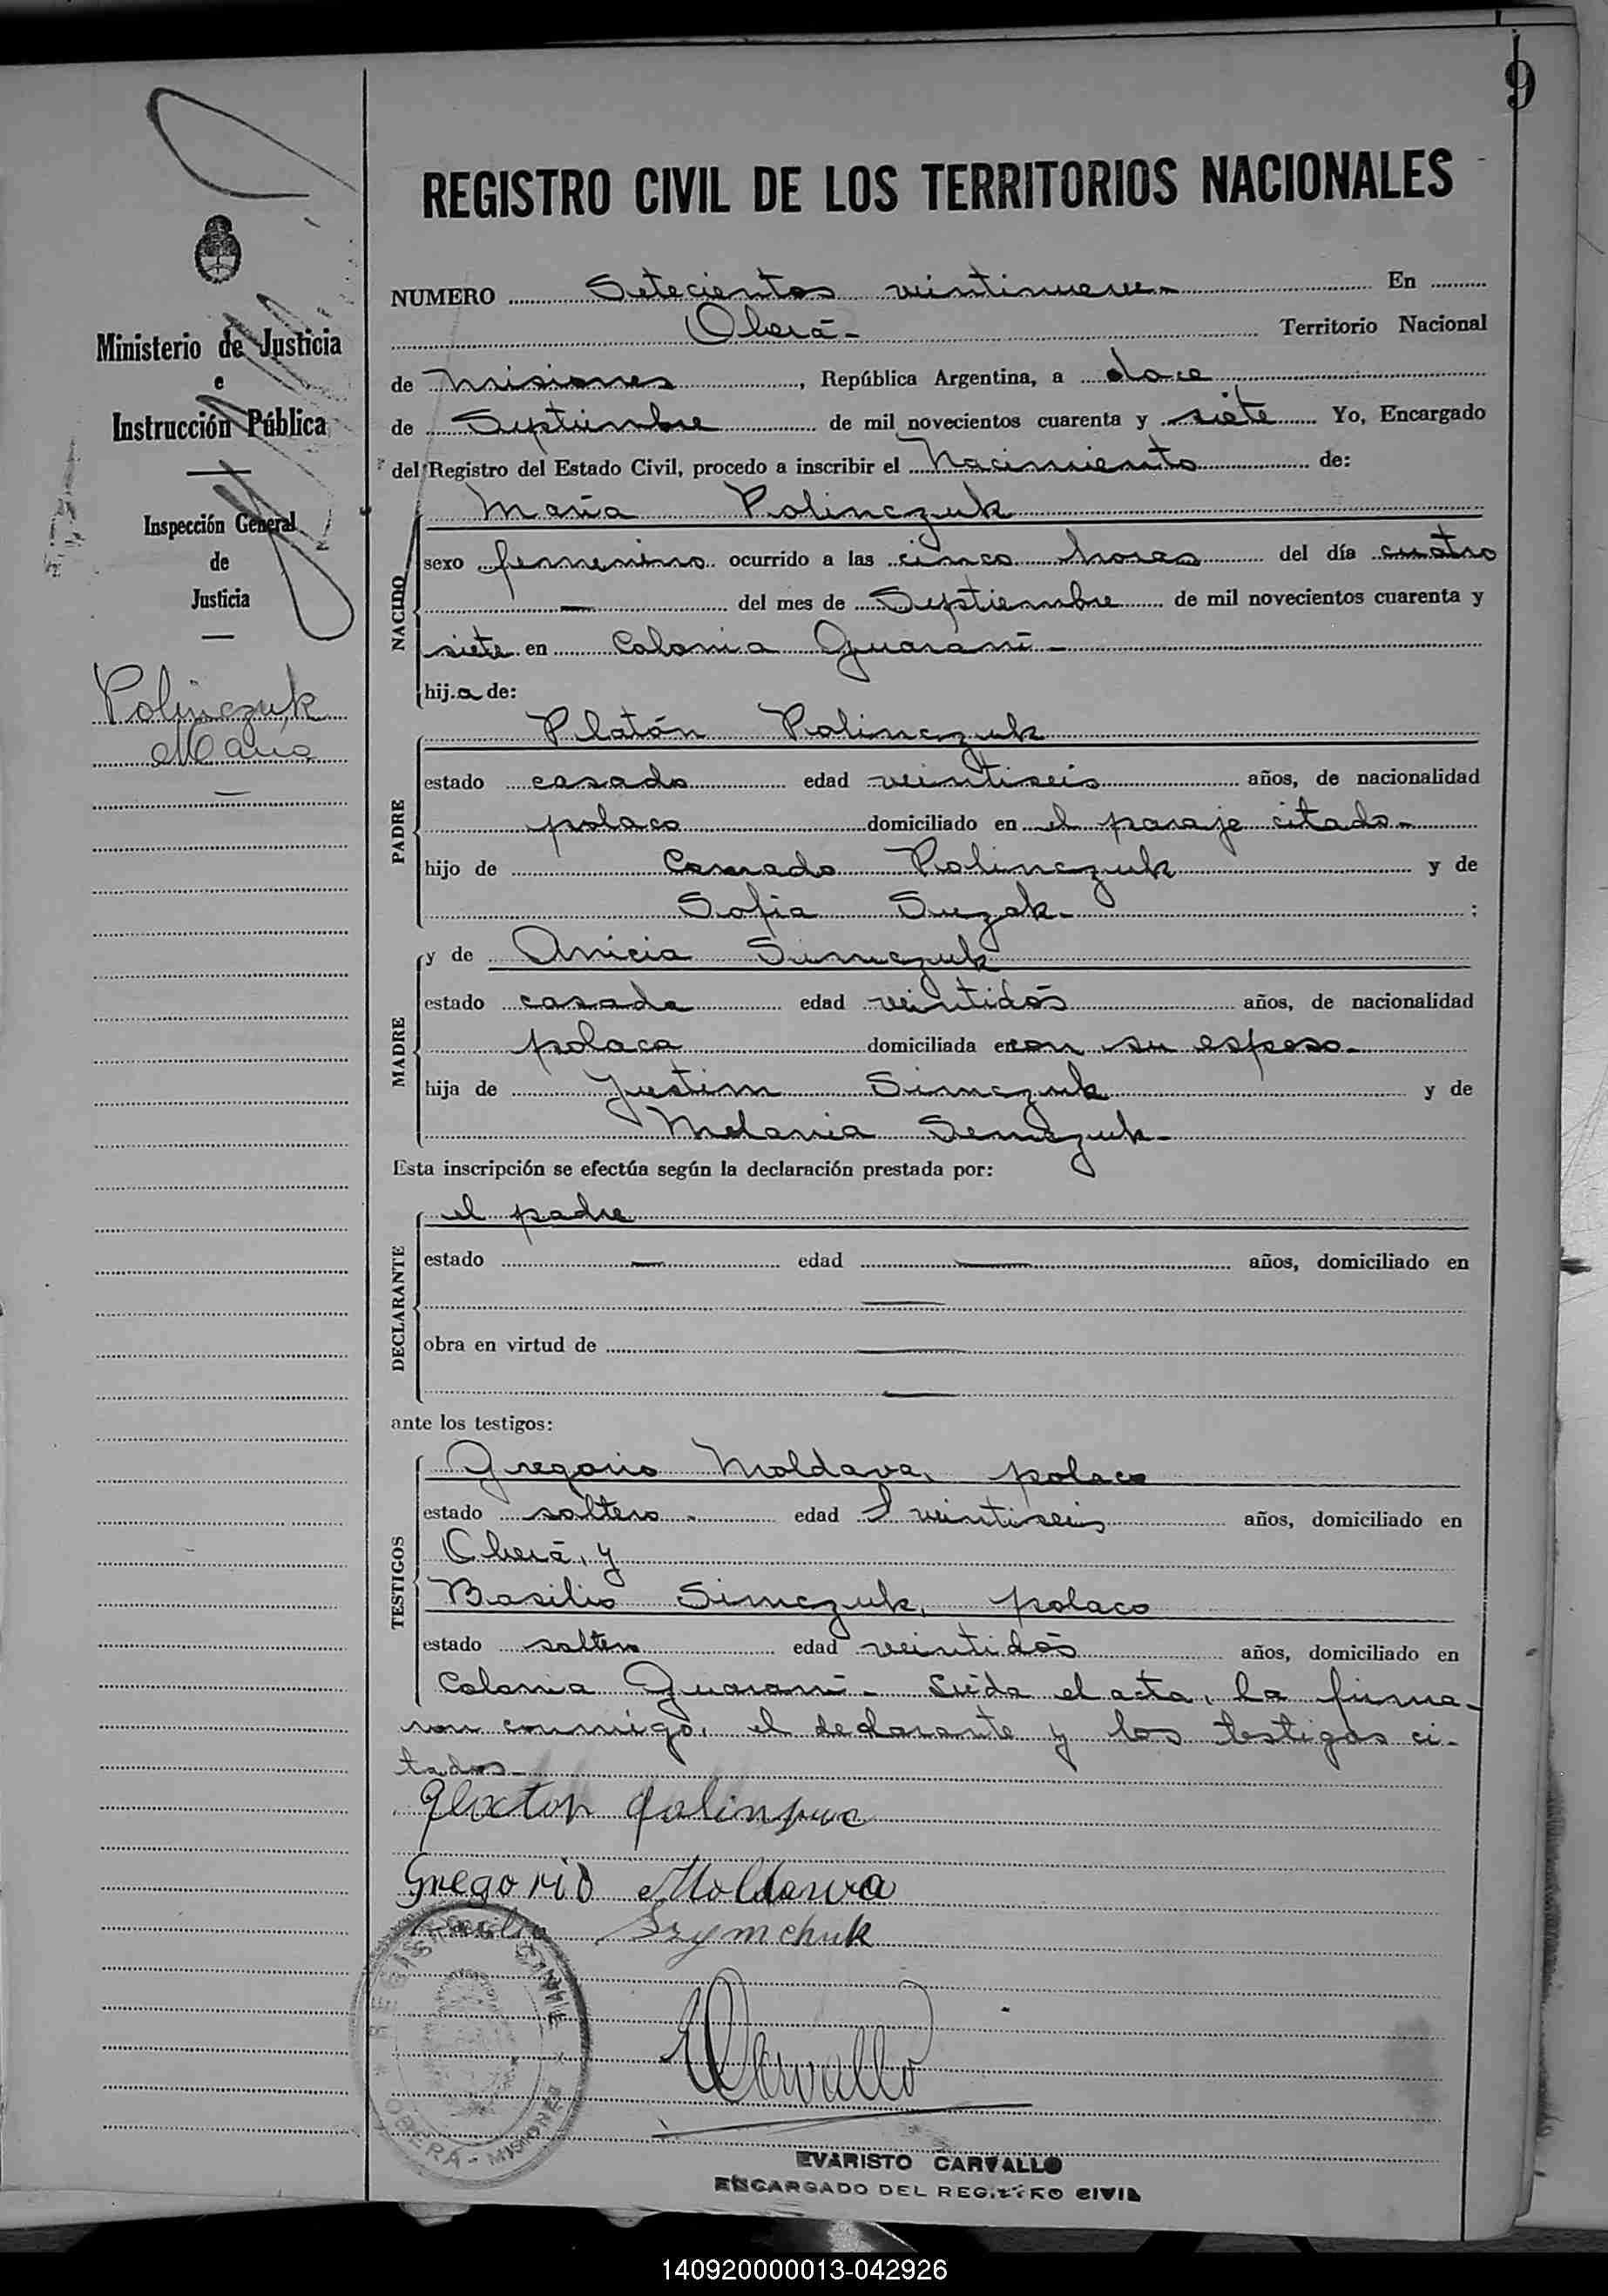 9
REGISTRO CIVIL DE LOS TERRITORIOS NACIONALES
Ministerio de Justicia
e
Instrucción Pública
Inspección General
de
Justicia
Polinczuk
María
NUMERO Setecientos veintinueve- En
Oberá- Territorio Nacional
de Misiones, República Argentina, a doce
de Septiembre de mil novecientos cuarenta y siete Yo, Encargado
del Registro del Estado Civil, procedo a inscribir el Nacimiento de:
NACIDO
María Polinczuk
sexo femenino ocurrido a las cinco horas del día cuatro
— del mes de Septiembre de mil novecientos cuarenta y
siete en Colonia Guaraní-
hija de:
PADRE
Platón Polinczuk
estado casado edad veintiseis años, de nacionalidad
polaco domiciliado en el paraje citado-
hijo de Conrado Polinczuk y de
Sofia Suzak- ;
MADRE
y de Anicia Simczuk
estado casada edad veintidós años, de nacionalidad
polaca domiciliada en con su esposo-
hija de Justim Simczuk y de
Melania Semczuk-
Esta inscripción se efectúa según la declaración prestada por:
DECLARANTE
el padre
estado — edad — años, domiciliado en
—
obra en virtud de —
—
ante los testigos:
TESTIGOS
Gregorio Moldava, polaco
estado soltero - edad veintiseis años, domiciliado en
Oberá, y
Basilio Simczuk, polaco
estado soltero edad veintidós años, domiciliado en
Colonia Guaraní- Leída el acta, la firma-
ron conmigo, el declarante y los testigos ci-
tados-
Gregorio Moldawa
Szymchuk
ECarvallo
OBERÁ - MISIONES
EVARISTO CARVALLO
ENCARGADO DEL REGISTRO CIVIL
140920000013-042926